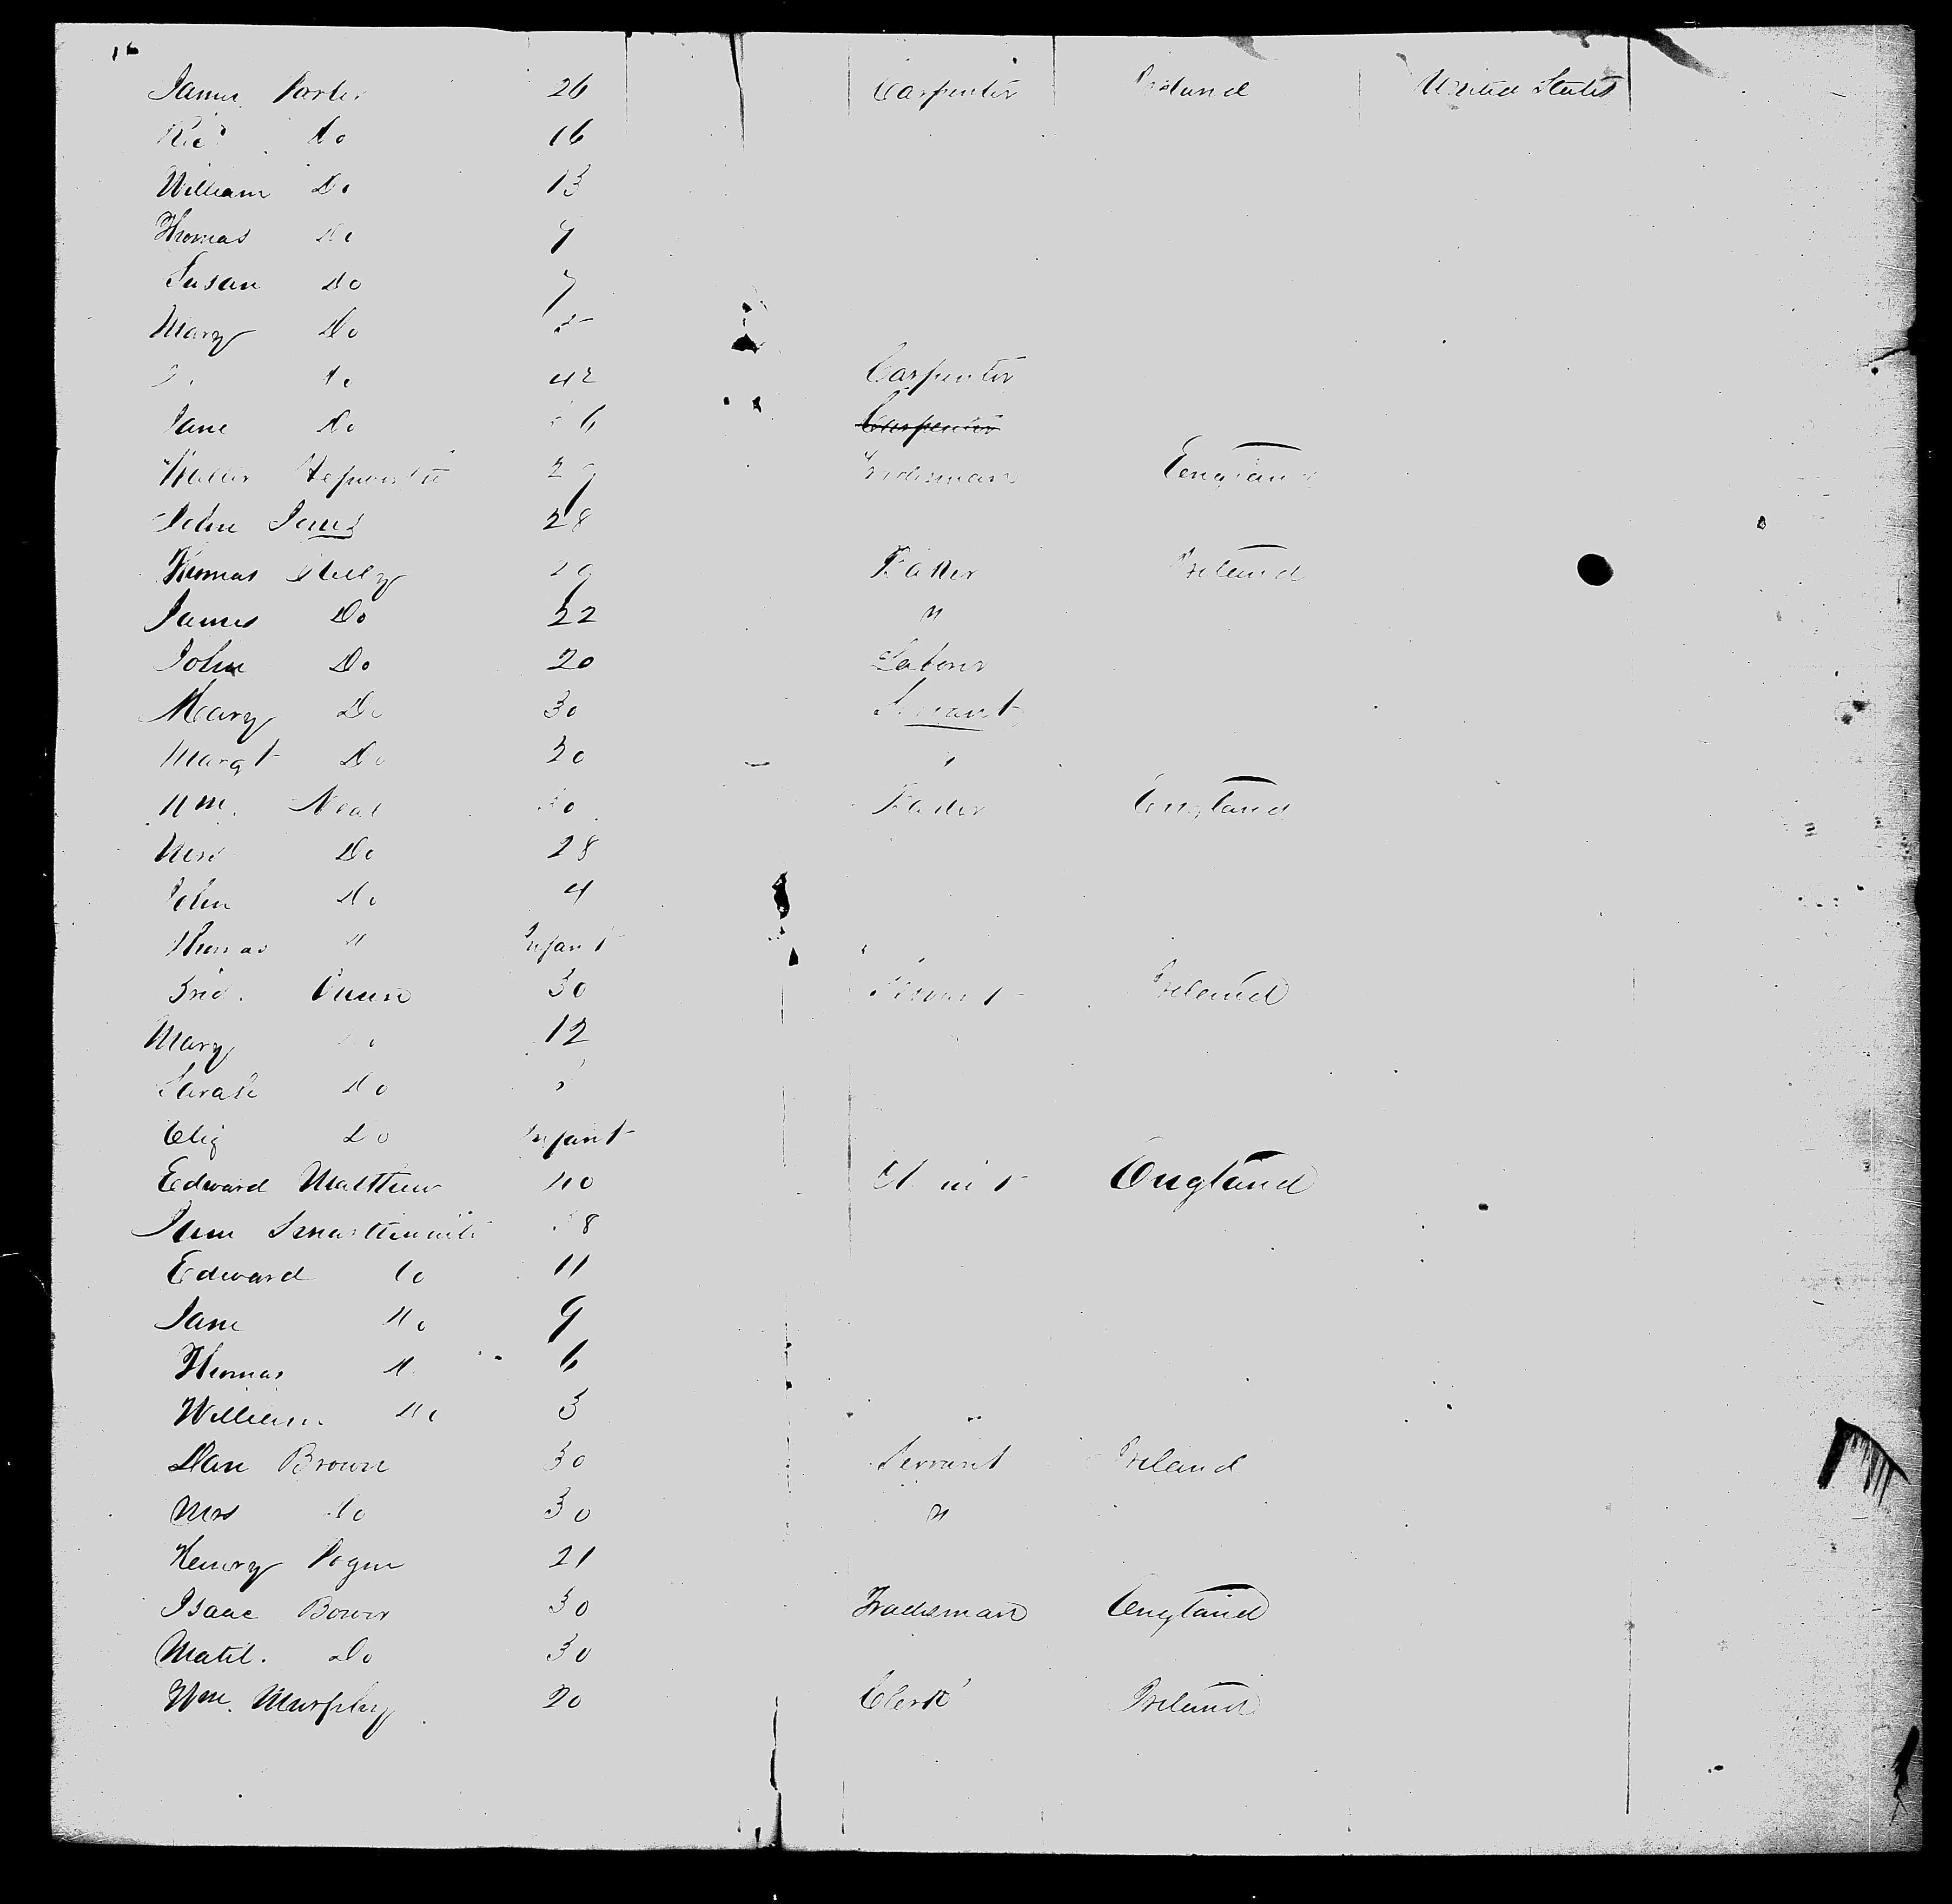 16
James Porter 26 Carpenter Ireland United States
Ric<sup>d</sup> Do 16
William Do 13
Thomas Do 9
Susan Do 7
Mary Do 5
Do 42 Carpenter
Jane Do Carpenter
Hepworth 29 Tradesman England
John Jones 28
Thomas Kelly Baker Ireland
James Do 22 "
John Do 20 Laborer
Mary Do 30 Servant
Margt Do 20 "
Wm. Neal England
Mrs Do 28
John Do 4
Thomas Do Infant
Brid. 30 Servant Ireland
Mary Do 12
Sarah Do
Eliz Do Infant
Edward Matthew 40 England
Edward Do 11
Jane Do 9
Thomas Do 6
William Do 3
Dan Brown 30 Servant Ireland
Mrs Do 30 "
Henry 21
Isaac Bower 30 Tradesman England
Matil. Do 30
Wm. Murphy 20 Clerk Ireland